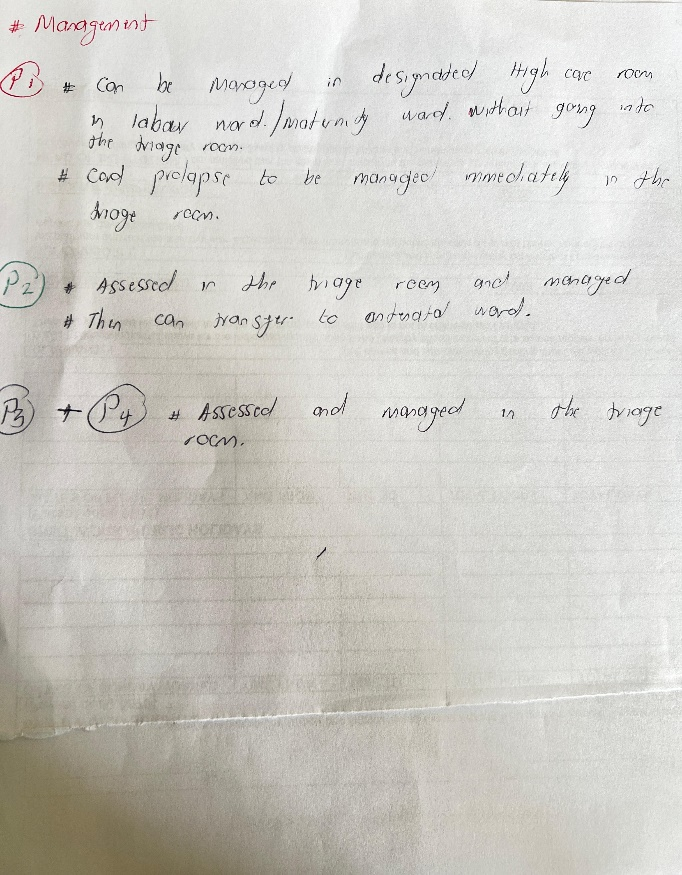 # Management
P1 # Can be Managed in designated High care room
in labour ward./maternity ward. without going into
the triage room.
# Cord prolapse to be managed immediately in the
triage room.
P2 # Assessed in the triage room and managed
# Then can transfer to antenatal ward.
P3 + P4 # Assessed and managed in the triage
room.